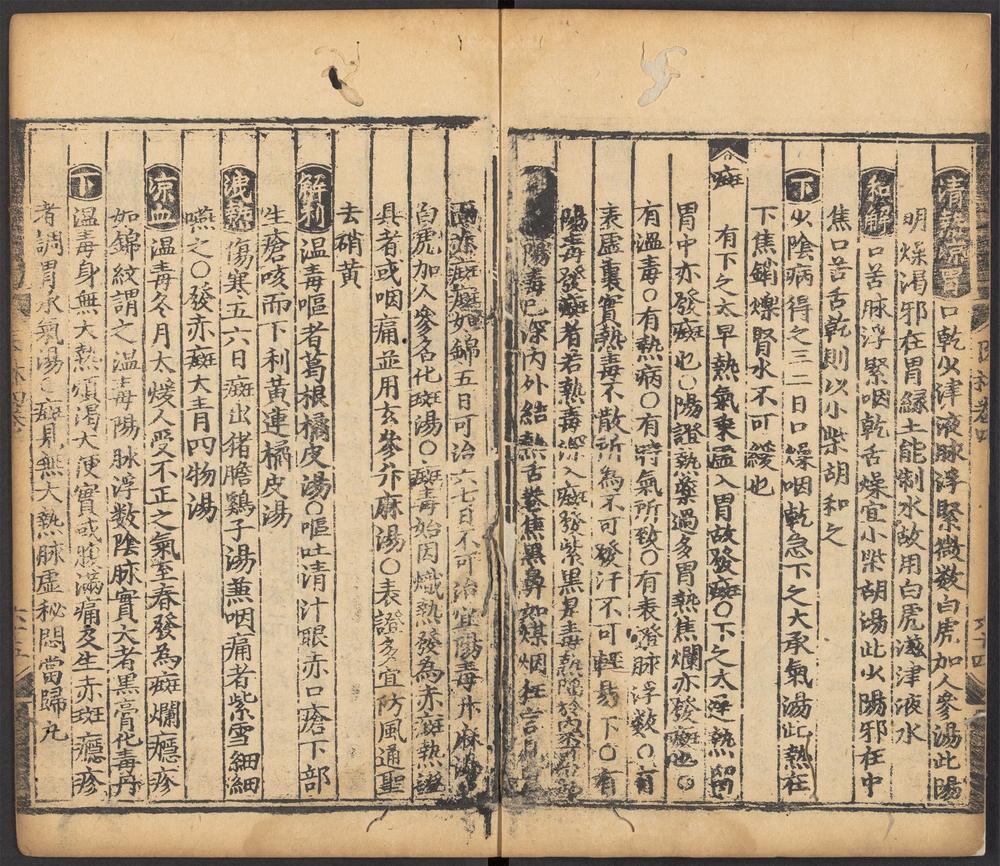 清熱 口乾少津液脉浮緊微數白虎加人參湯此陽
明燥渴邪在胃緣土能制水故用白虎滋津液水
和解 口苦脉浮緊咽乾舌燥宜小柴胡湯此少陽邪在中
焦口苦舌乾則以小柴胡和之
下 少陰病得之二三日口燥咽乾急下之大承氣湯此熱在
下焦銷爍腎水不可緩也
斑 有下之太早熱氣乘虛入胃故發斑○下之太遲熱留
胃中亦發斑也○陽證熱藥過多胃熱焦爛亦發斑也○
有溫毒○有熱病○有時氣所致○有表證脉浮數○有
表虛裏實熱毒不散所為不可發汗不可輕易下○有
陽毒發斑者若熱毒深入斑發紫黑
陽毒已深內外結熱舌卷焦黑鼻如煤烟狂言
面赤斑斑如錦五日可治六七日不可治宜陽毒升麻湯
白虎加人參名化斑湯○斑毒始因熾熱發為赤斑熱證
具者或咽痛並用玄參升麻湯○表證多宜防風通聖
去硝黃
解利 溫毒嘔者葛根橘皮湯○嘔吐清汁眼赤口瘡下部
生瘡咳而下利黃連橘皮湯
洩熱 傷寒五六日斑出猪膽鷄子湯兼咽痛者紫雪細細
嚥之○發赤斑大青四物湯
涼血 溫毒冬月太煖人受不正之氣至春發為斑爛癮疹
如錦紋謂之溫毒陽脉浮数陰脉實大者黑膏化毒丹
下 溫毒身無大熱煩渴大便實或腹滿痛多生赤斑癮疹
者調胃承氣湯○斑見無大熱脉虛秘悶當歸丸